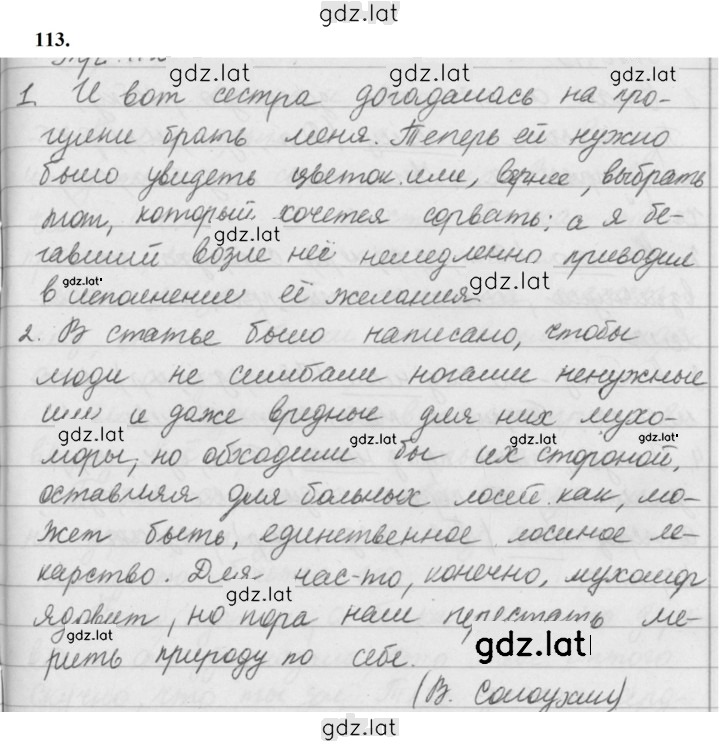 gdz.lat
113.
gdz.lat gdz.lat
1. И вот сестра догадалась на про-
гулки брать меня. Теперь ей нужно
было увидеть цветок или, вернее, выбрать
тот, который хочется сорвать; а я бе-
gdz.lat
гавший возле неё немедленно приводил
gdz.lat gdz.lat
в исполнение её желания.
2. В статье было написано, чтобы
люди не сшибали ногами ненужные
им и даже вредные для них мухо-
gdz.lat gdz.lat gdz.lat gdz.lat
моры, но обходили бы их стороной,
оставляя для больных лосей как, мо-
жет быть, единственное лосиное ле-
карство. Для нас-то, конечно, мухомор
gdz.lat
ядовит, но пора нам перестать ме-
gdz.lat gdz.lat
рить природу по себе.
(В. Солоухин)
gdz.lat